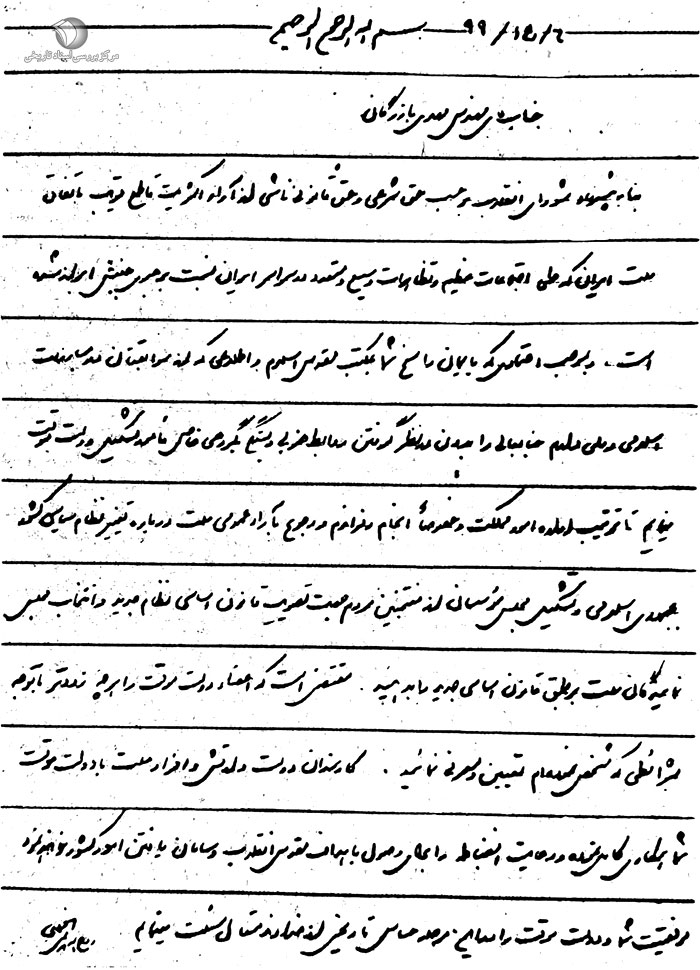 مرکز بررسی اسناد تاریخی
بسم الله الرحمن الرحیم ۶/ع۱/۹۹
جناب آقای مهندس مهدی بازرگان
بنا به پیشنهاد شورای انقلاب برحسب حق شرعی و حق قانونی ناشی از آراء اکثریت قاطع قریب باتفاق
ملت ایران که طی اجتماعات عظیم و تظاهرات وسیع و متعدد در سراسر ایران نسبت برهبری جنبش ابراز شده
است . و بموجب اعتمادی که بایمان راسخ شما بمکتب مقدس اسلام و اطلاعی که از سوابقتان در مبارزات
اسلامی و ملی دارم جنابعالی را بدون در نظر گرفتن روابط حزبی و بستگی بگروهی خاص مأمور تشکیل دولت موقت
مینمایم تا ترتیب اداره امور مملکت و خصوصاً انجام رفراندم و رجوع بآراء عمومی ملت درباره تغییر نظام سیاسی کشور
بجمهوری اسلامی و تشکیل مجلس مؤسسان از منتخبین مردم جهت تصویب قانون اساسی نظام جدید و انتخاب مجلس
نمایندگان ملت بر طبق قانون اساسی جدید را بدهید . مقتضی است که اعضاء دولت موقت را هر چه زودتر با توجه
بشرائطی که مشخص نموده‌ام تعیین و معرفی نمائید . کارمندان دولت و ارتش و افراد ملت با دولت موقت
شما همکاری کامل نموده و رعایت انضباط را برای وصول باهداف مقدس انقلاب و سامان یافتن امور کشور خواهند نمود
موفقیت شما و دولت موقت را در این مرحله حساس تاریخی از خداوند متعال مسئلت مینمایم
روح الله الموسوی الخمینی